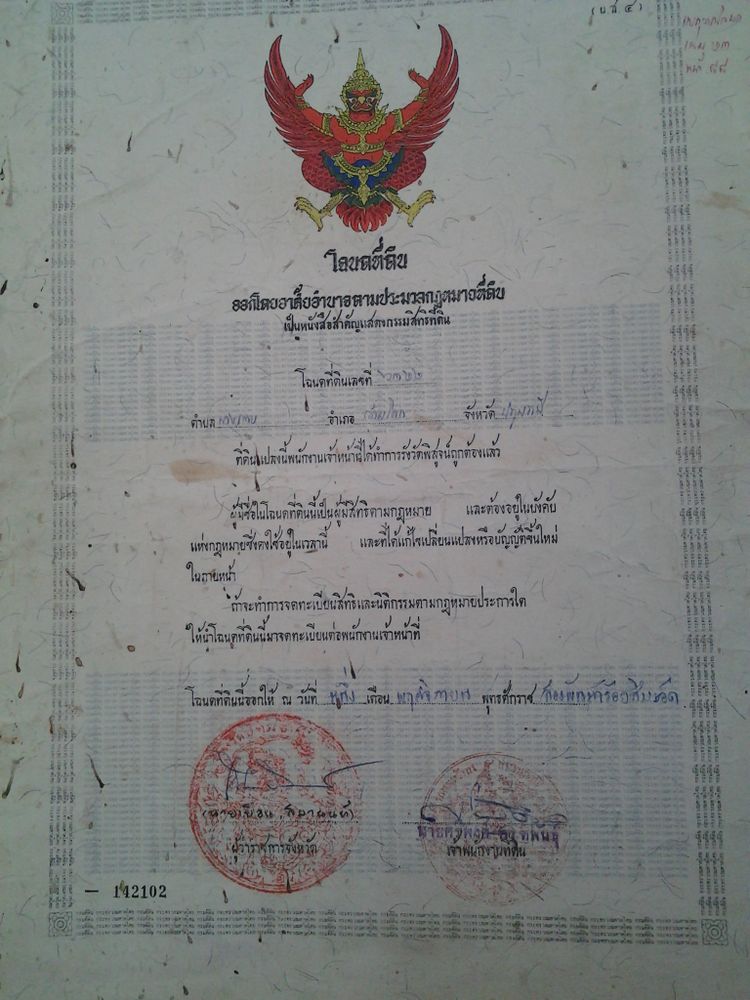 (น.ส.๔)
โฉนดที่ดิน
ออกโดยอาศัยอำนาจตามประมวลกฎหมายที่ดิน
เป็นหนังสือสำคัญแสดงกรรมสิทธิ์ที่ดิน
โฉนดที่ดินเลขที่
ตำบล อำเภอ จังหวัด
ที่ดินแปลงนี้พนักงานเจ้าหน้าที่ได้ทำการรังวัดพิสูจน์ถูกต้องแล้ว
ผู้มีชื่อในโฉนดที่ดินนี้เป็นผู้มีสิทธิตามกฎหมาย และต้องอยู่ในบังคับ
แห่งกฎหมายซึ่งคงใช้อยู่ในเวลานี้ และที่ได้แก้ไขเปลี่ยนแปลงหรือบัญญัติขึ้นใหม่
ในภายหน้า
ถ้าจะทำการจดทะเบียนสิทธิและนิติกรรมตามกฎหมายประการใด
ให้นำโฉนดที่ดินนี้มาจดทะเบียนต่อพนักงานเจ้าหน้าที่
โฉนดที่ดินนี้ออกให้ ณ วันที่ หนึ่ง เดือน พฤศจิกายน พุทธศักราช
ผู้ว่าราชการจังหวัด
เจ้าพนักงานที่ดิน
— 142102